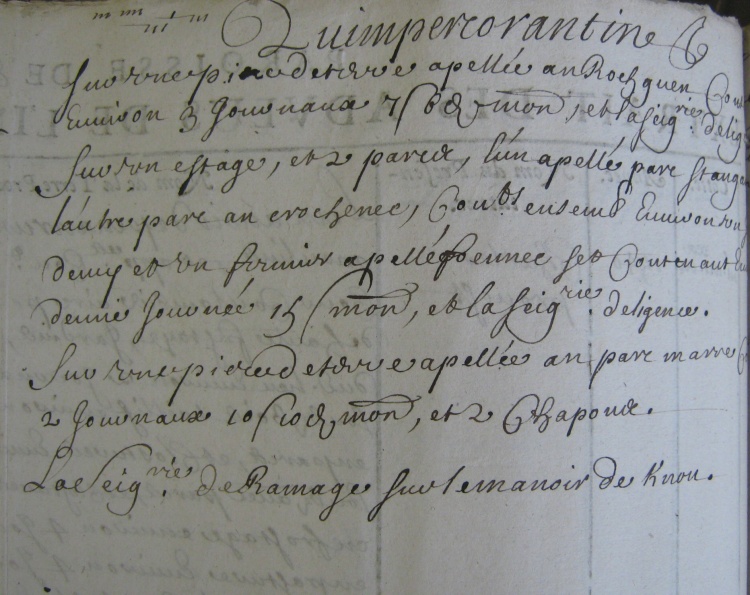 Quimpercorantine
Sur une piece de terre apellée an Roch guen Con
Environ 3 Journaux 7ʃ 6d mon, et la seigrie de lig
Sur un estage, et 2 parcs, l'un apellé parc stang
l'autre parc an crochenec, Contts ensemb Environ un
demy et un fournier apellé fennec set Contenant
demie Journée 15ʃ mon, et la seigrie deligence.
Sur une piece de terre apellée an parc marre
2 Journaux 10ʃ 10d mon, et 2 Chapons.
La Seigrie de Ramage sur le manoir de Knou.